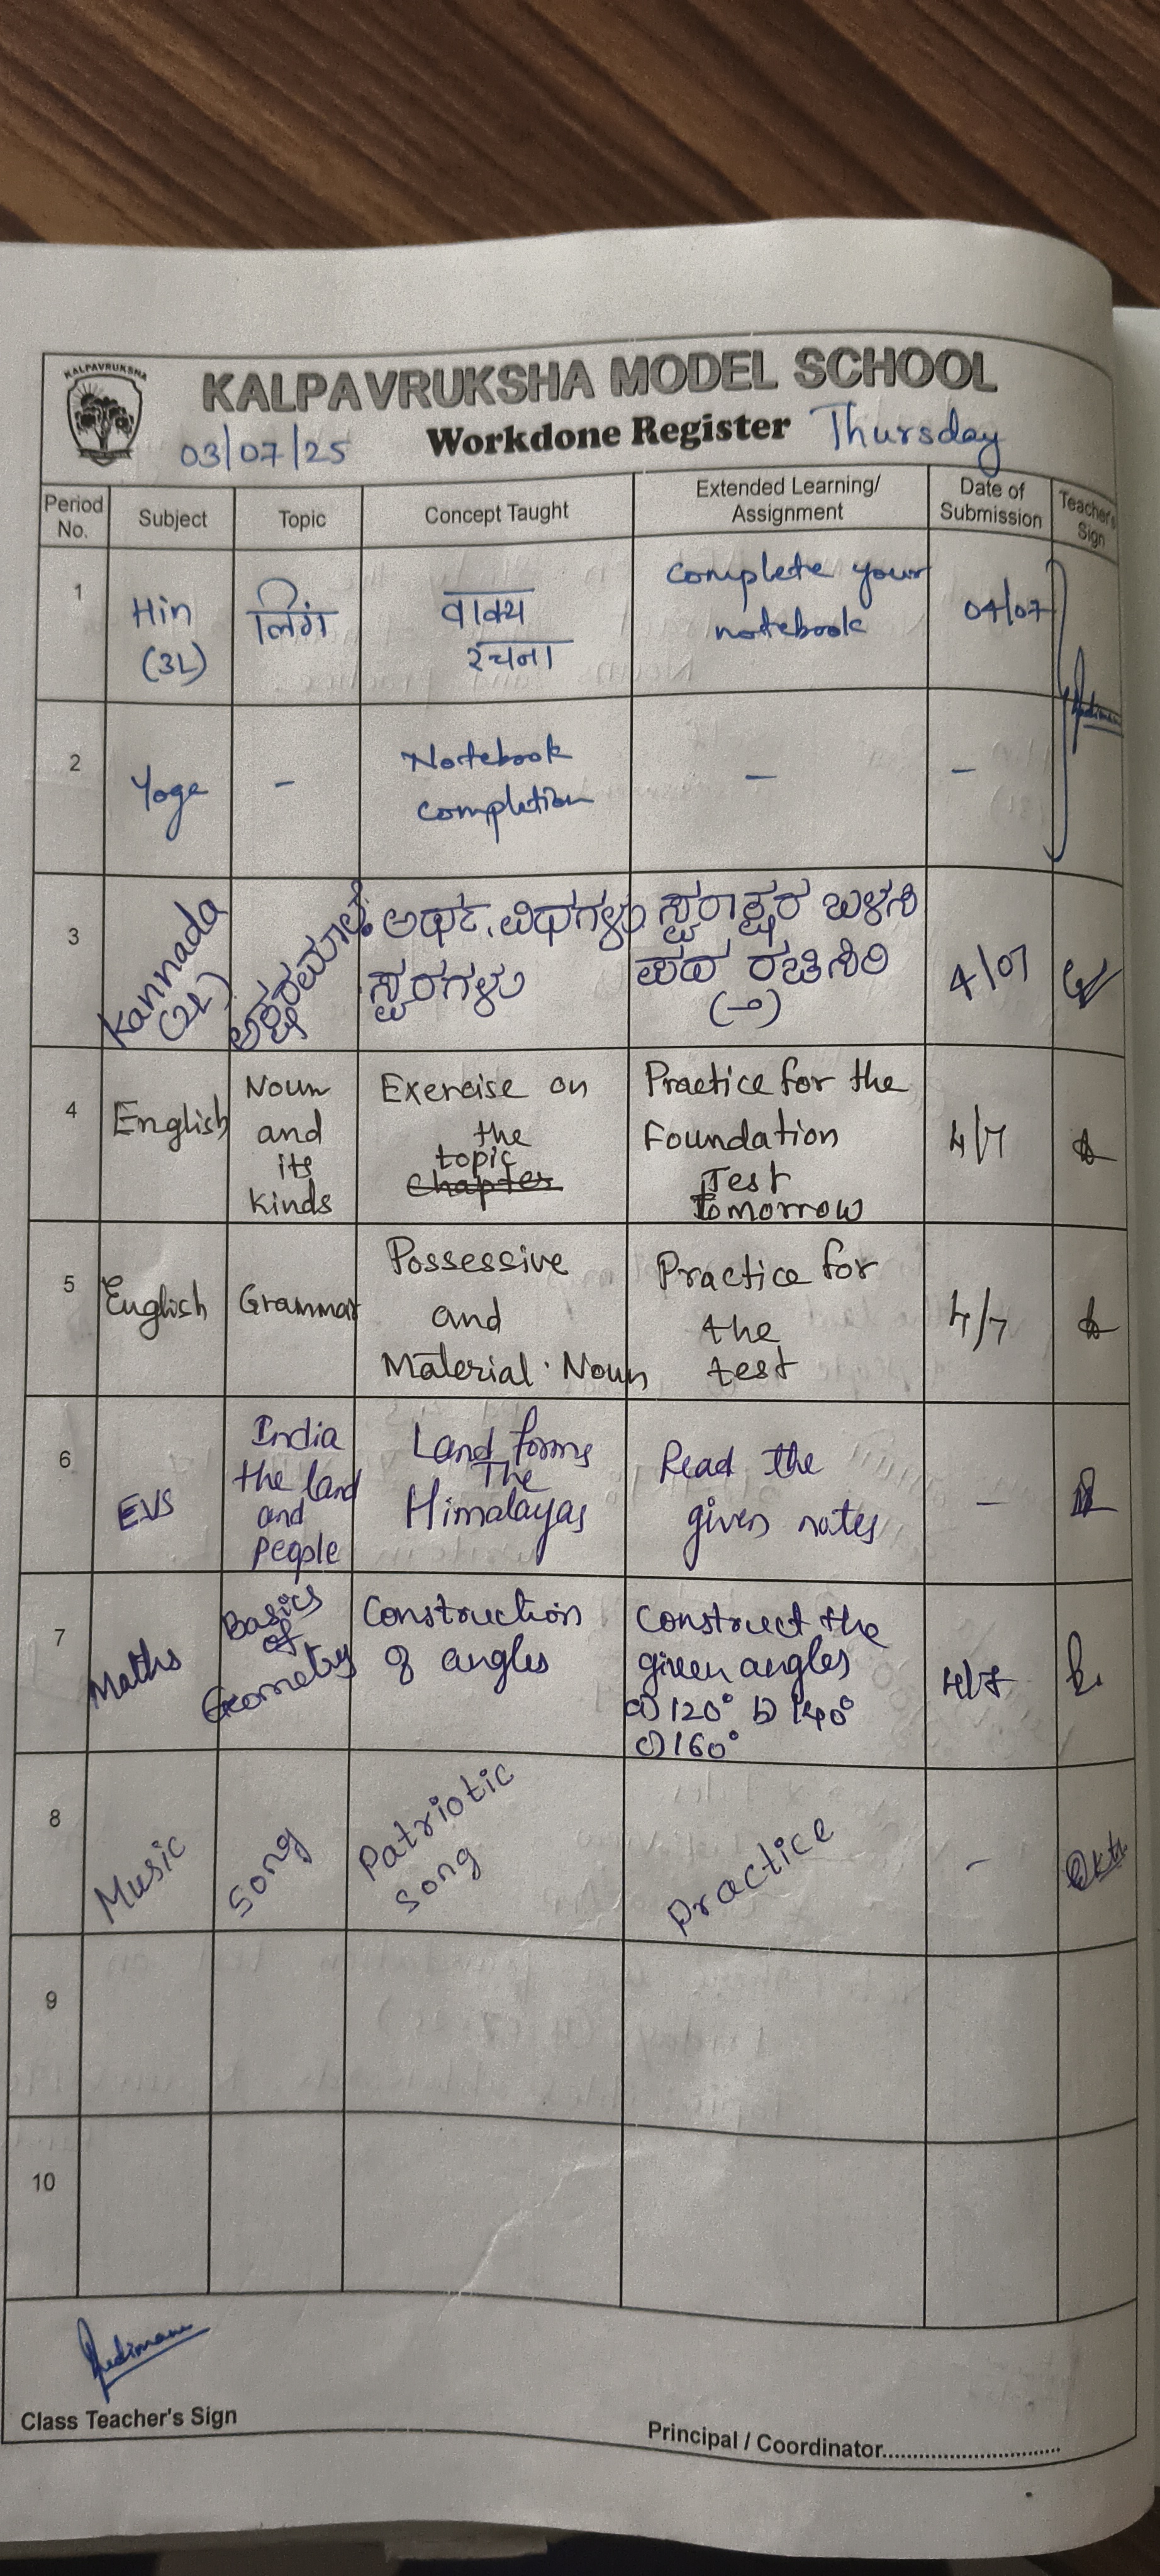 KALPAVRUKSHA
KALPAVRUKSHA MODEL SCHOOL
03/07/25 Workdone Register Thursday
Period No. Subject Topic Concept Taught Extended Learning/ Assignment Date of Submission Teacher's Sign
1 Hin (3L) लिंग वाक्य रचना complete your notebook 04/07
2 Yoga - Notebook completion - -
3 Kannada (2L) ಅಕ್ಷರಮಾಲೆ ಅರ್ಥ, ವಿಧಗಳು ಸ್ವರಗಳು ಸ್ವರಾಕ್ಷರ ಬಳಸಿ ಪದ ರಚಿಸಿರಿ 4/07
4 English Noun and its kinds Exercise on the topic chapter Practice for the Foundation Test Tomorrow 4/7
5 English Grammar Possessive and Material Noun Practice for the test 4/7
6 EVS India the land and people Land forms The Himalayas Read the given notes -
7 Maths Basics of Geometry Construction of angles Construct the given angles a) 120° b) 140° c) 160° 4/7
8 Music Song Patriotic song Practice -
9
10
Class Teacher's Sign
Principal / Coordinator................................